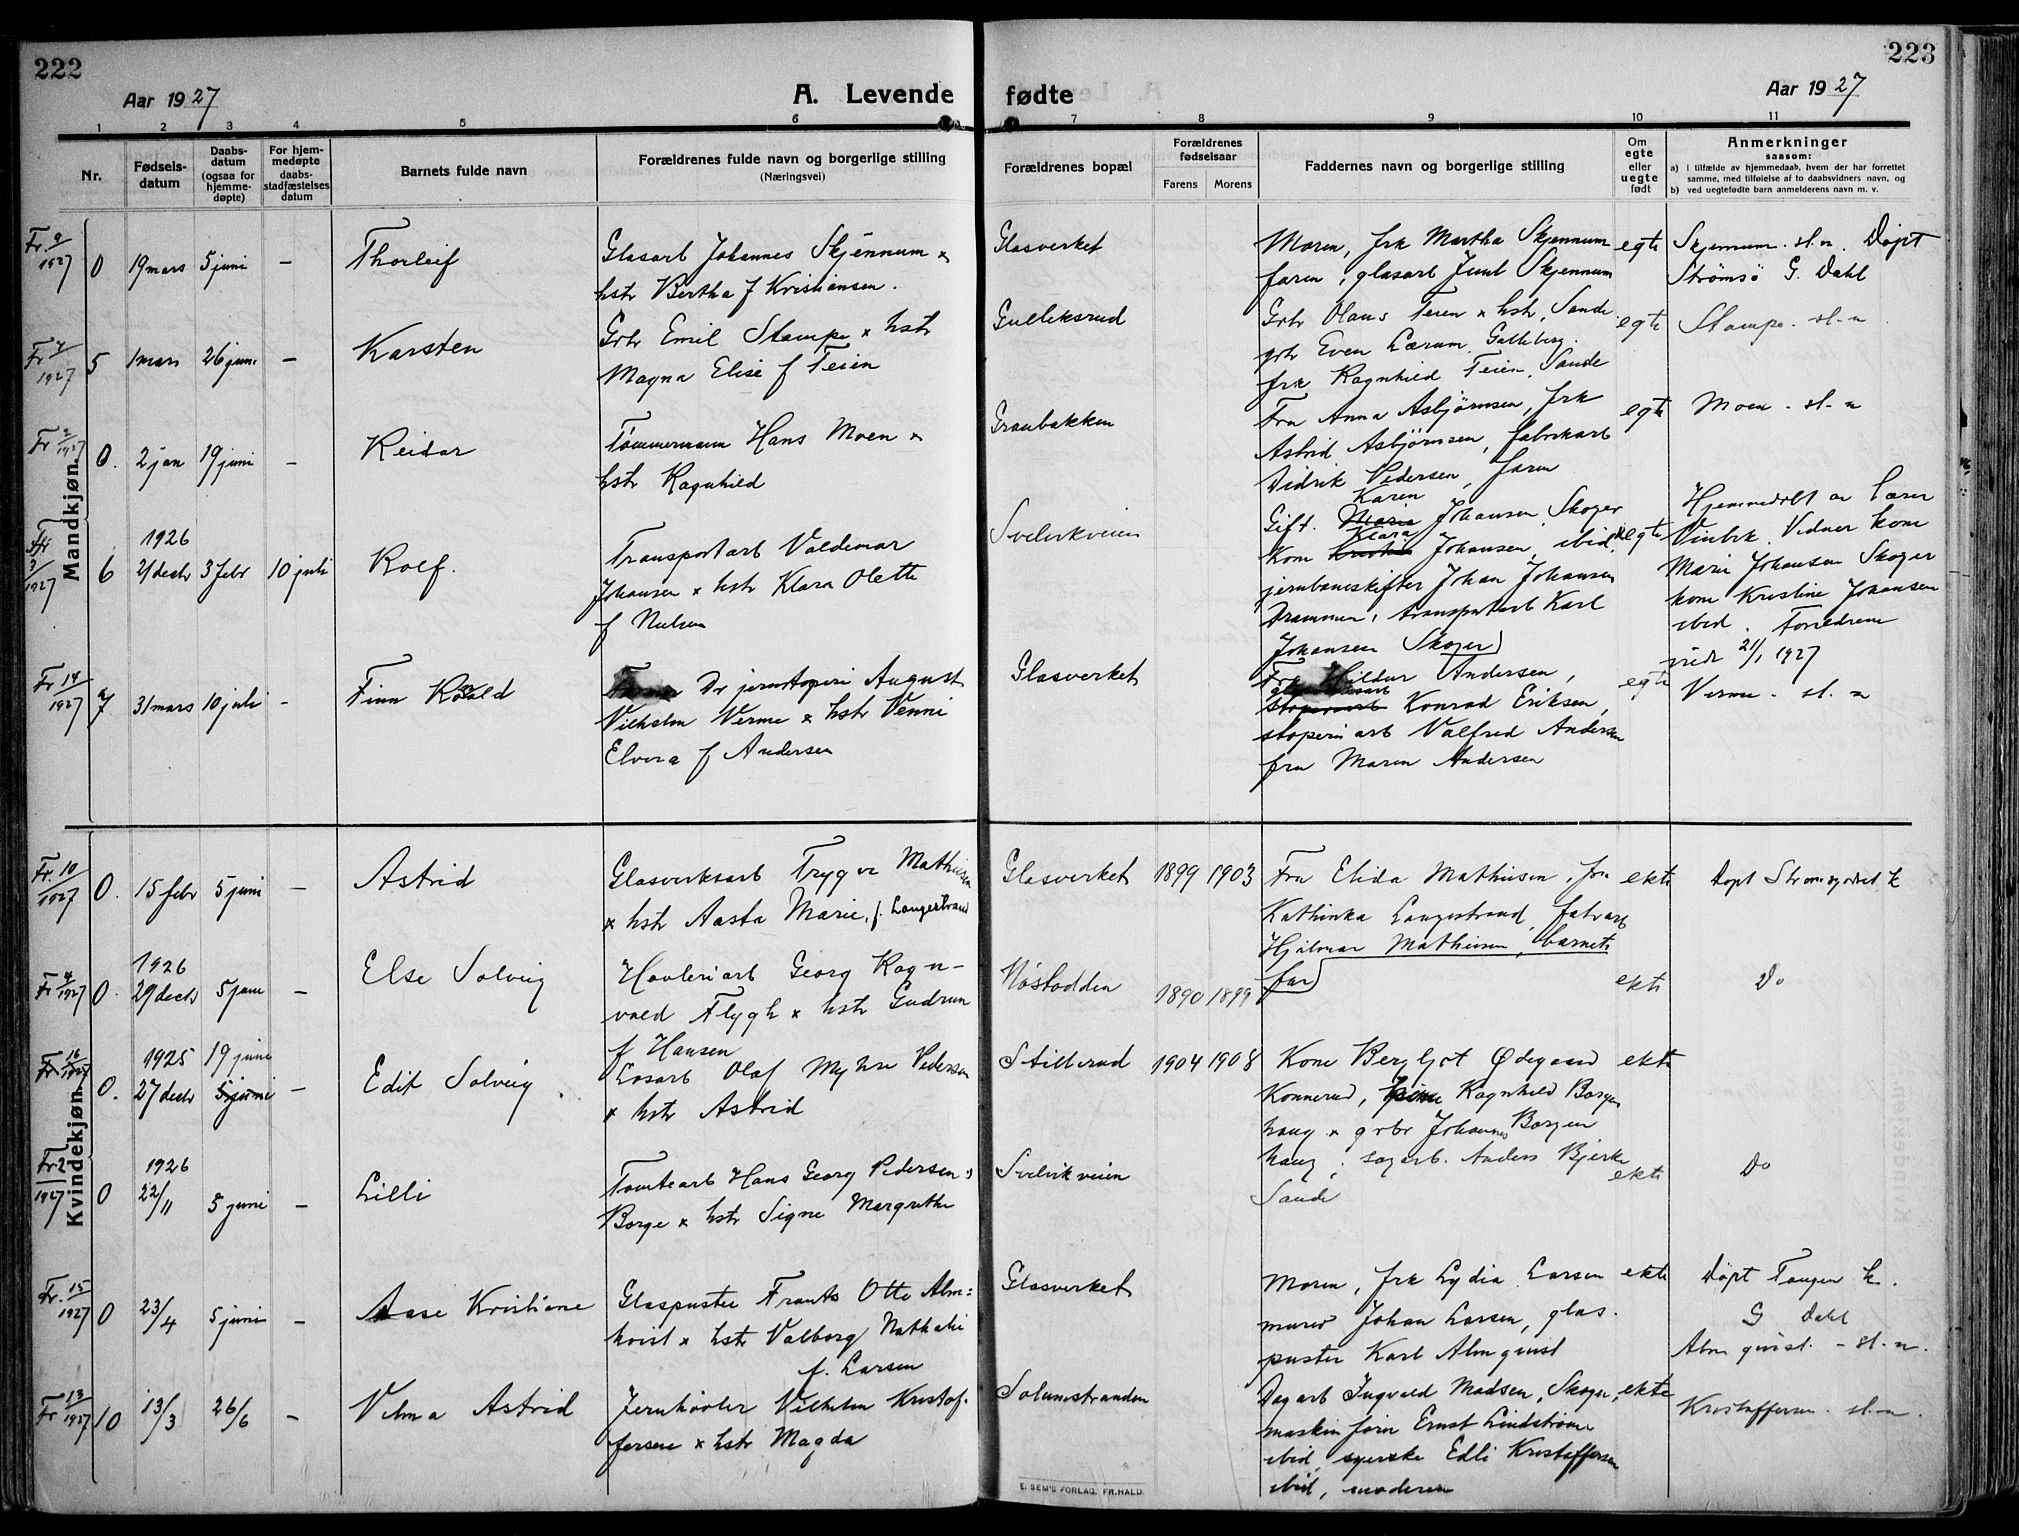 222
223
Aar 1927
A. Levende
fødte
Aar 1927
1 2 3 4 5 6 7 8 9 10 11
Nr.
Fødsels-
datum
Daabs-
datum
(ogsaa for
hjemme-
døpte)
For hjem-
medøpte
daabs-
stadfæstelses
datum
Barnets fulde navn
Forældrenes fulde navn og borgerlige stilling
(Næringsvei)
Forældrenes bopæl
Forældrenes
fødselsaar
Farens Morens
Faddernes navn og borgerlige stilling
Om
egte
eller
uegte
født
Anmerkninger
saasom:
a) i tilfælde av hjemmedaab, hvem der har forrettet
samme, med tilføielse af to daabsvidners navn, og
b) ved uegtefødte barn anmelderens navn m. v.
Mandkjøn.
Fr. 9/1927 0 19 mars 5 juni – Thorleif
Glasarb Johannes Skjennum x
hstr Bertha f Kristiansen.
Glasverket
Moren, frk Martha Skjennum
faren, glasarb Juul Skjennum
egte
Skjennum. sl. n. Døpt
Strømsö G. Dahl
Fr 7/1927 5 1 mars 26 juni – Karsten
Grbr Emil Stampe x hstr
Magna Elise f Teien
Gulleksrud
Grbr Olaus Teien x hstr, Sande
grbr Even Lærum, Galleberg.
frk Ragnhild Teien, Sande
egte
Stampe. sl. n
Fr 2/1927 0. 2 jan 19 juni – Reidar
Tømmermann Hans Moen x
hstr Ragnhild
Granbakken
Fru Anna Asbjørnsen, frk
Astrid Asbjørnsen, fabrikarb
Didrik Pedersen, faren
egte
Moen. sl. n
Fr 3/1927 6 1926 21 decbr 3 febr 10 juli Rolf.
Transportarb Valdemar
Johansen x hstr Klara Olette
f Nielsen
Svelvikveien
Karen
Gift. Maria Johansen, Skoger
Klara
Kone Kristine Johansen, ibid.
jernbaneskifter Johan Johansen
Drammen, transportarb Karl
Johansen Skoger
egte
Hjemmedøbt av lærer
Vinbrk. Vidner kone
Marie Johansen Skoger
kone Kristine Johansen
ibid. Foreldrene
viede 21/1 1927
Fr 14/1927 7 31 mars 10 juli – Finn Roald
Dr jernstøperi August
Vilhelm Verme x hstr Venni
Elvira f Andersen
Glasverket
Hildur Andersen,
Konrad Eriksen,
støperiarb Valfred Andersen
fru Maren Andersen
egte
Verme. sl. n
Kvindekjøn.
Fr. 10/1927 0. 15 febr 5 juni – Astrid
Glasverksarb Trygve Mathiesen
x hstr Aasta Marie, f. Langestrand
Glasverket 1899 1903
Fru Elida Mathiesen, fru
Kathinka Langestrand, fabrarb
Hjalmar Mathiesen, barnets
far
ekte
Døpt Strømsgodset k
Fr 4/1927 0. 1926 29 decbr 5 juni – Else Solveig
Høvleriarb Georg Ragn-
vald Flygh x hstr Gudrun
f Hansen
Nøstodden 1890 1899
ekte
Do
Fr 16/1927 0. 1925 27 decbr 19 juni 5 juni – Edit Solveig
Losarb Olaf Myhre Pedersen
x hstr Astrid
Stillerud 1904 1908
Kone Bergljot Ødegaard
Konnerud, Ragnhild Borgen
haug x grbr Johannes Borgen
haug, sagarb. Anders Bjerke
Sande
ekte
Fr 2/1927 0 1926 22/11 5 juni – Lilli
Tomtearb Hans Georg Pedersen
Borge x hstr Signe Margrethe
Svelvikveien
ekte
Do
Fr. 15/1927 0 23/4 5 juni – Aase Kristiane
Glaspuster Frants Otto Alm=
kvist x hstr Valborg Nathalie
f. Larsen
Glasverket
Moren, frk Lydia Larsen
murer Johan Larsen, glas.
puster Karl Almquist
ekte
Døpt Tangen k.
G Dahl
Almquist. – sl. n.
Fr 13/1927 10 13/3 26/6 – Velma Astrid
Jernhøvler Vilhelm Kristof-
fersen x hstr Magda
Solumstranden
Dagarb Ingvald Madsen, Skoger,
maskinform Ernst Lindstrøm
ibid, syerske Edli Kristoffersen
ibid, moderen
ekte
Kristoffersen. sl. n.
E. SEM'S FORLAG, FR.HALD.